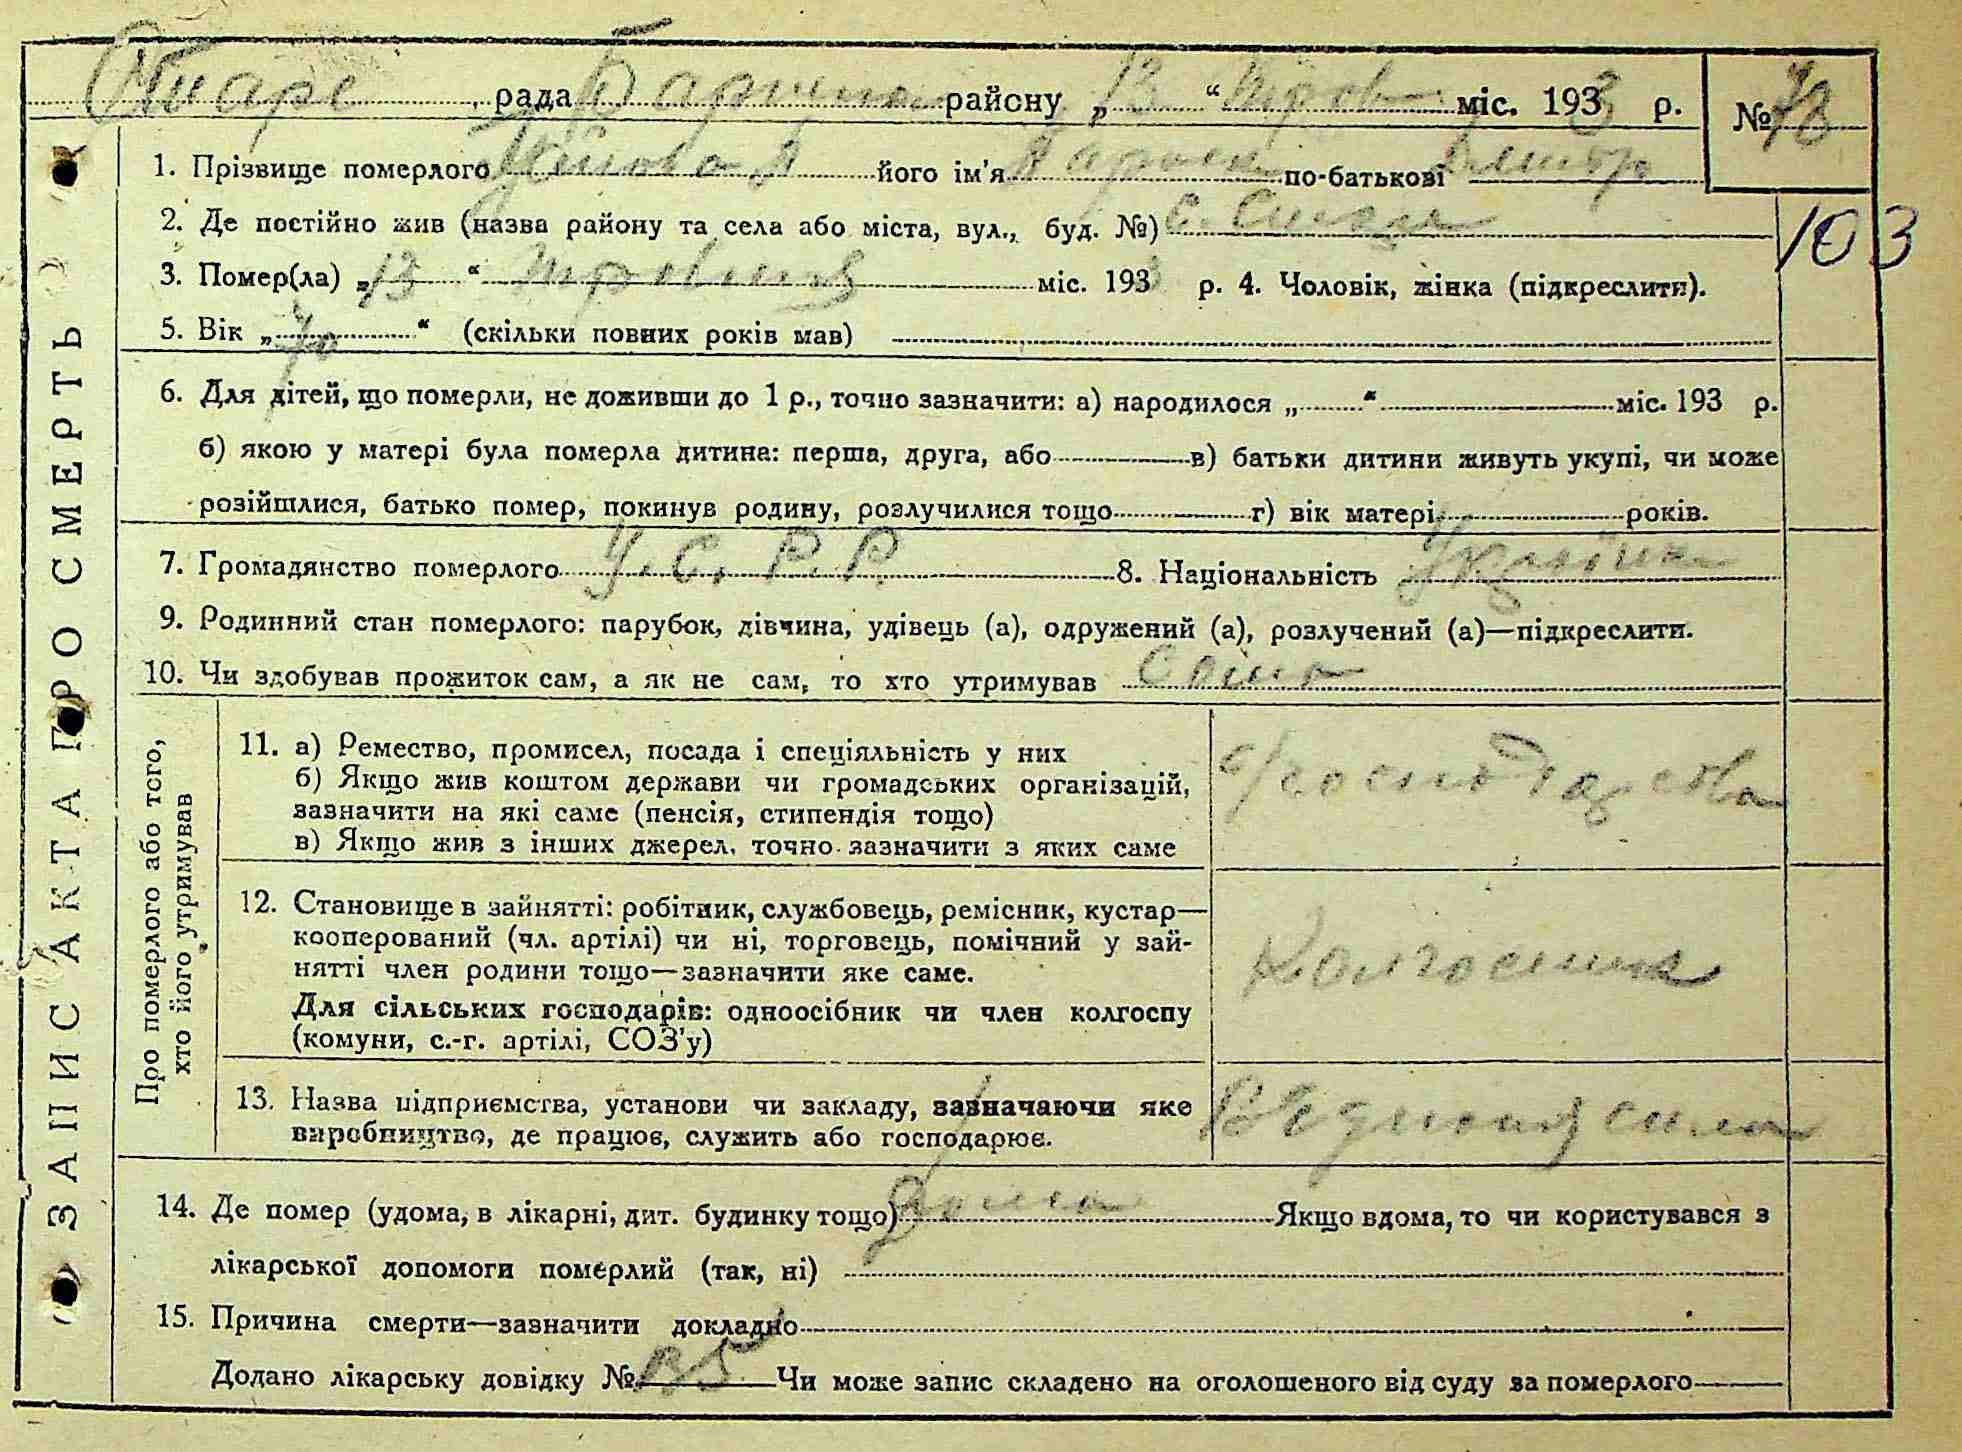 рада районуу „ 13 “ Трав міс. 1933 р. № 78
1. Прізвище померлого його ім'я по-батькові
103
2. Де постійно жив (назва району та села або міста, вул., буд. №) с.
3. Помер(ла) „ 13 “ травня міс. 1933 р. 4. Чоловік, жінка (підкреслити).
5. Вік „ 70 “ (скільки повних років мав)
6. Для дітей, що померли, не доживши до 1 р., точно зазначити: а) народилося „ “ міс. 193 р.
б) якою у матері була померла дитина: перша, друга, або в) батьки дитини живуть укупі, чи може
розійшлися, батько помер, покинув родину, розлучилися тощо г) вік матері років.
7. Громадянство померлого У.С.Р.Р. 8. Національність Українка
9. Родинний стан померлого: парубок, дівчина, удівець (а), одружений (а), розлучений (а)—підкреслити.
10. Чи здобував прожиток сам, а як не сам, то хто утримував
ЗАПИС АКТА ПРО СМЕРТЬ
Про померлого або того,
хто його утримував
11. а) Ремество, промисел, посада і спеціяльність у них
б) Якщо жив коштом держави чи громадських організацій,
зазначити на які саме (пенсія, стипендія тощо)
в) Якщо жив з інших джерел, точно зазначити з яких саме
с/господарства
12. Становище в зайнятті: робітник, службовець, ремісник, кустар—
кооперований (чл. артілі) чи ні, торговець, помічний у зай-
нятті член родини тощо—зазначити яке саме.
Для сільських господарів: одноосібник чи член колгоспу
(комуни, с.-г. артілі, СОЗ'у)
Колгоспник
13. Назва підприємства, установи чи закладу, зазначаючи яке
виробництво, де працює, служить або господарює.
14. Де помер (удома, в лікарні, дит. будинку тощо) дома Якщо вдома, то чи користувався з
лікарської допомоги померлий (так, ні)
15. Причина смерти—зазначити докладно
Додано лікарську довідку № Чи може запис складено на оголошеного від суду за померлого